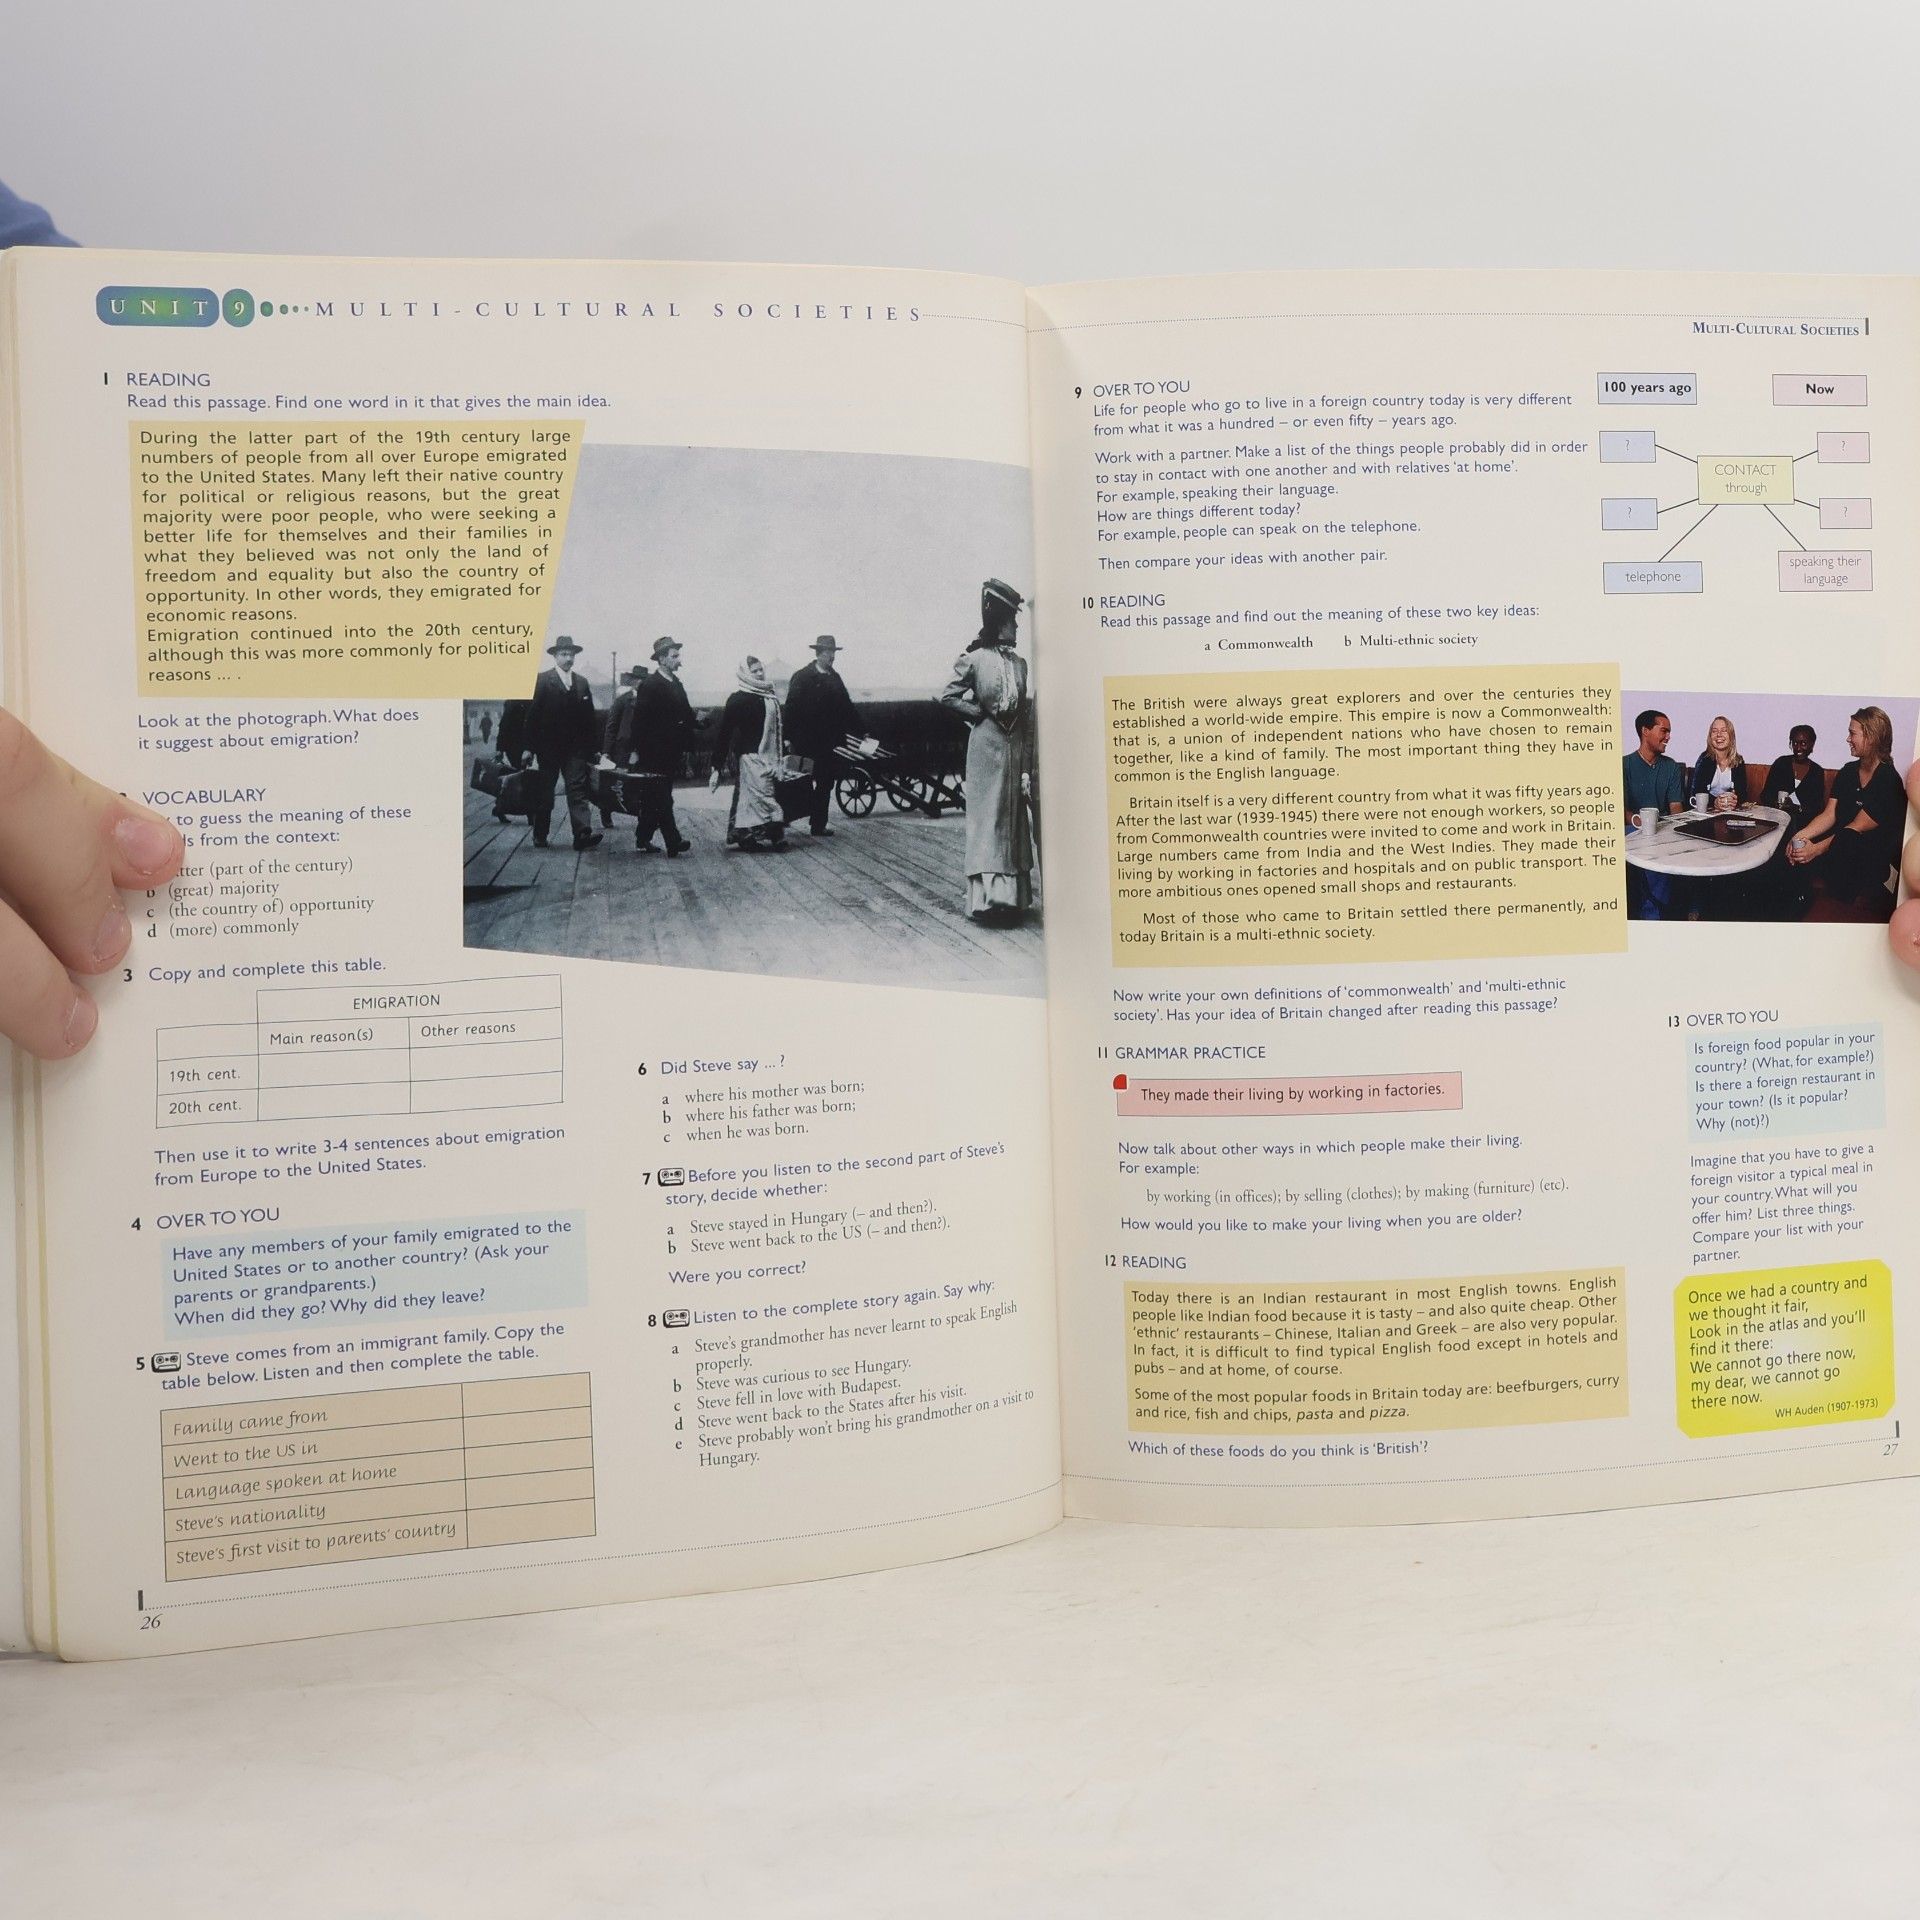 UNIT 9 MULTI-CULTURAL SOCIETIES
1 READING
Read this passage. Find one word in it that gives the main idea.
During the latter part of the 19th century large
numbers of people from all over Europe emigrated
to the United States. Many left their native country
for political or religious reasons, but the great
majority were poor people, who were seeking a
better life for themselves and their families in
what they believed was not only the land of
freedom and equality but also the country of
opportunity. In other words, they emigrated for
economic reasons.
Emigration continued into the 20th century,
although this was more commonly for political
reasons ... .
Look at the photograph. What does
it suggest about emigration?
VOCABULARY
to guess the meaning of these
from the context:
(part of the century)
b (great) majority
c (the country of) opportunity
d (more) commonly
3 Copy and complete this table.
EMIGRATION
Main reason(s) Other reasons
19th cent.
20th cent.
Then use it to write 3-4 sentences about emigration
from Europe to the United States.
4 OVER TO YOU
Have any members of your family emigrated to the
United States or to another country? (Ask your
parents or grandparents.)
When did they go? Why did they leave?
5 Steve comes from an immigrant family. Copy the
table below. Listen and then complete the table.
Family came from
Went to the US in
Language spoken at home
Steve's nationality
Steve's first visit to parents' country
26
6 Did Steve say ... ?
a where his mother was born;
b where his father was born;
c when he was born.
7 Before you listen to the second part of Steve's
story, decide whether:
a Steve stayed in Hungary (– and then?).
b Steve went back to the US (– and then?).
Were you correct?
8 Listen to the complete story again. Say why:
a Steve's grandmother has never learnt to speak English
properly.
b Steve was curious to see Hungary.
c Steve fell in love with Budapest.
d Steve went back to the States after his visit.
e Steve probably won't bring his grandmother on a visit to
Hungary.
MULTI-CULTURAL SOCIETIES
9 OVER TO YOU
Life for people who go to live in a foreign country today is very different
from what it was a hundred – or even fifty – years ago.
Work with a partner. Make a list of the things people probably did in order
to stay in contact with one another and with relatives 'at home'.
For example, speaking their language.
How are things different today?
For example, people can speak on the telephone.
Then compare your ideas with another pair.
100 years ago Now
? ?
CONTACT
through
? ?
telephone
speaking their
language
10 READING
Read this passage and find out the meaning of these two key ideas:
a Commonwealth b Multi-ethnic society
The British were always great explorers and over the centuries they
established a world-wide empire. This empire is now a Commonwealth:
that is, a union of independent nations who have chosen to remain
together, like a kind of family. The most important thing they have in
common is the English language.
Britain itself is a very different country from what it was fifty years ago.
After the last war (1939-1945) there were not enough workers, so people
from Commonwealth countries were invited to come and work in Britain.
Large numbers came from India and the West Indies. They made their
living by working in factories and hospitals and on public transport. The
more ambitious ones opened small shops and restaurants.
Most of those who came to Britain settled there permanently, and
today Britain is a multi-ethnic society.
Now write your own definitions of 'commonwealth' and 'multi-ethnic
society'. Has your idea of Britain changed after reading this passage?
11 GRAMMAR PRACTICE
They made their living by working in factories.
Now talk about other ways in which people make their living.
For example:
by working (in offices); by selling (clothes); by making (furniture) (etc).
How would you like to make your living when you are older?
12 READING
Today there is an Indian restaurant in most English towns. English
people like Indian food because it is tasty – and also quite cheap. Other
'ethnic' restaurants – Chinese, Italian and Greek – are also very popular.
In fact, it is difficult to find typical English food except in hotels and
pubs – and at home, of course.
Some of the most popular foods in Britain today are: beefburgers, curry
and rice, fish and chips, pasta and pizza.
Which of these foods do you think is 'British'?
13 OVER TO YOU
Is foreign food popular in your
country? (What, for example?)
Is there a foreign restaurant in
your town? (Is it popular?
Why (not)?)
Imagine that you have to give a
foreign visitor a typical meal in
your country. What will you
offer him? List three things.
Compare your list with your
partner.
Once we had a country and
we thought it fair,
Look in the atlas and you'll
find it there:
We cannot go there now,
my dear, we cannot go
there now.
WH Auden (1907-1973)
27